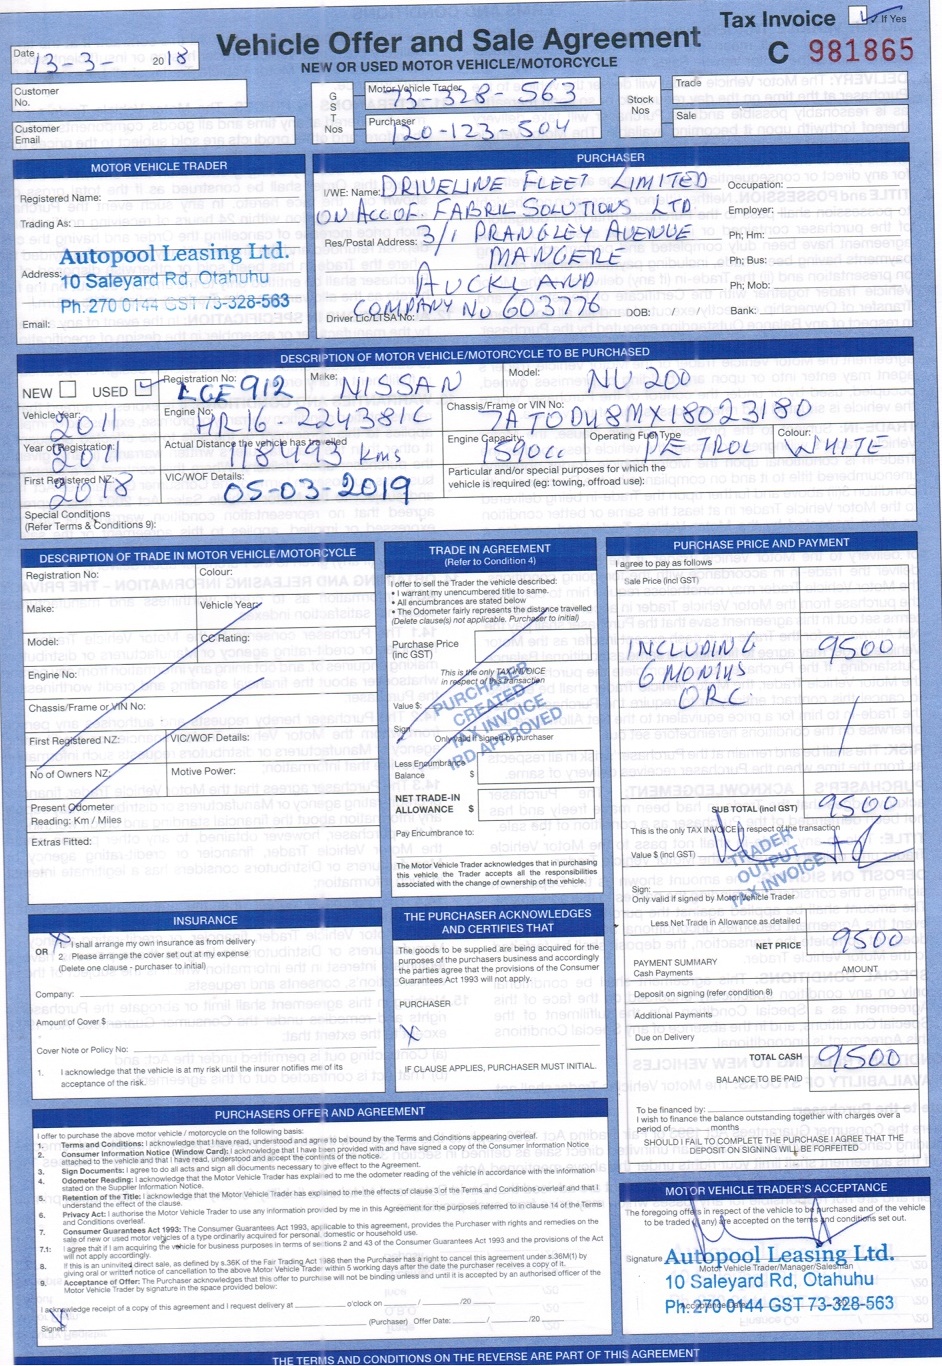 Tax Invoice ✓ If Yes
Date 13-3- 2018
Vehicle Offer and Sale Agreement
NEW OR USED MOTOR VEHICLE/MOTORCYCLE
C 981865
Customer No.
Customer Email
GST Nos
Motor Vehicle Trader 73-328-563
Purchaser 120-123-504
Stock Nos
Trade
Sale
MOTOR VEHICLE TRADER
Registered Name:
Trading As:
Autopool Leasing Ltd.
Address: 10 Saleyard Rd, Otahuhu
Ph: 270 0144 GST 73-328-563
Email:
PURCHASER
I/WE: Name: DRIVELINE FLEET LIMITED
ON ACC OF. FABRIL SOLUTIONS LTD.
Res/Postal Address: 3/1 PRANGLEY AVENUE
MANGERE
AUCKLAND
COMPANY NO 603776
Driver Lic/LTSA No: DOB: / /
Occupation:
Employer:
Ph; Hm:
Ph; Bus:
Ph; Mob:
Bank:
DESCRIPTION OF MOTOR VEHICLE/MOTORCYCLE TO BE PURCHASED
NEW USED ✓ Registration No: LGE912 Make: NISSAN Model: NV200
Vehicle Year: 2011 Engine No: HR16-224381C Chassis/Frame or VIN No: 7AT0DV8MX18023180
Year of Registration: 2011 Actual Distance the vehicle has travelled 118493 kms Engine Capacity: 1590cc Operating Fuel Type PETROL Colour: WHITE
First Registered NZ: 2018 VIC/WOF Details: 05-03-2019 Particular and/or special purposes for which the
vehicle is required (eg: towing, offroad use):
Special Conditions
(Refer Terms & Conditions 9):
DESCRIPTION OF TRADE IN MOTOR VEHICLE/MOTORCYCLE
Registration No: Colour:
Make: Vehicle Year:
Model: CC Rating:
Engine No:
Chassis/Frame or VIN No:
First Registered NZ: VIC/WOF Details:
No of Owners NZ: Motive Power:
Present Odometer
Reading: Km / Miles
Extras Fitted:
TRADE IN AGREEMENT
(Refer to Condition 4)
I offer to sell the Trader the vehicle described:
• I warrant my unencumbered title to same.
• All encumbrances are stated below
• The Odometer fairly represents the distance travelled
(Delete clause(s) not applicable. Purchaser to initial)
Purchase Price
(inc GST)
This is the only TAX INVOICE
in respect of this transaction
Value $:
Sign:
Only valid if signed by purchaser
PURCHASER
CREATED
TAX INVOICE
IRD APPROVED
Less Encumbrance
Balance $
NET TRADE-IN
ALLOWANCE $
Pay Encumbrance to:
The Motor Vehicle Trader acknowledges that in purchasing
this vehicle the Trader accepts all the responsibilities
associated with the change of ownership of the vehicle.
PURCHASE PRICE AND PAYMENT
I agree to pay as follows
Sale Price (incl GST)
INCLUDING 9500
6 MONTHS
ORC.
SUB TOTAL (incl GST) 9500
This is the only TAX INVOICE in respect of the transaction
Value $ (incl GST)
TRADER
OUTPUT
TAX INVOICE
Sign:
Only valid if signed by Motor Vehicle Trader
Less Net Trade in Allowance as detailed
NET PRICE 9500
PAYMENT SUMMARY
Cash Payments AMOUNT
Deposit on signing (refer condition 8)
Additional Payments
Due on Delivery
TOTAL CASH 9500
BALANCE TO BE PAID
To be financed by:
I wish to finance the balance outstanding together with charges over a
period of months
SHOULD I FAIL TO COMPLETE THE PURCHASE I AGREE THAT THE
DEPOSIT ON SIGNING WILL BE FORFEITED
INSURANCE
1. I shall arrange my own insurance as from delivery
OR
2. Please arrange the cover set out at my expense
(Delete one clause - purchaser to initial)
Company:
Amount of Cover $
Cover Note or Policy No:
1. I acknowledge that the vehicle is at my risk until the insurer notifies me of its
acceptance of the risk.
THE PURCHASER ACKNOWLEDGES
AND CERTIFIES THAT
The goods to be supplied are being acquired for the
purposes of the purchasers business and accordingly
the parties agree that the provisions of the Consumer
Guarantees Act 1993 will not apply.
PURCHASER
X
IF CLAUSE APPLIES, PURCHASER MUST INITIAL.
PURCHASERS OFFER AND AGREEMENT
I offer to purchase the above motor vehicle / motorcycle on the following basis:
1. Terms and Conditions: I acknowledge that I have read, understood and agree to be bound by the Terms and Conditions appearing overleaf.
2. Consumer Information Notice (Window Card): I acknowledge that I have been provided with and have signed a copy of the Consumer Information Notice
attached to the vehicle and that I have read, understood and accept the contents of the notice.
3. Sign Documents: I agree to do all acts and sign all documents necessary to give effect to the Agreement.
4. Odometer Reading: I acknowledge that the Motor Vehicle Trader has explained to me the odometer reading of the vehicle in accordance with the information
stated on the Supplier Information Notice.
5. Retention of the Title: I acknowledge that the Motor Vehicle Trader has explained to me the effects of clause 3 of the Terms and Conditions overleaf and that I
understand the effect of the clause.
6. Privacy Act: I authorise the Motor Vehicle Trader to use any information provided by me in this Agreement for the purposes referred to in clause 14 of the Terms
and Conditions overleaf.
7. Consumer Guarantees Act 1993: The Consumer Guarantees Act 1993, applicable to this agreement, provides the Purchaser with rights and remedies on the
sale of new or used motor vehicles of a type ordinarily acquired for personal, domestic or household use.
7.1: I agree that if I am acquiring the vehicle for business purposes in terms of sections 2 and 43 of the Consumer Guarantees Act 1993 and the provisions of the Act
will not apply accordingly.
8. If this is an uninvited direct sale, as defined by s.36K of the Fair Trading Act 1986 then the Purchaser has a right to cancel this agreement under s.36M(1) by
giving oral or written notice of cancellation to the above Motor Vehicle Trader within 5 working days after the date the purchaser receives a copy of it.
9. Acceptance of Offer: The Purchaser acknowledges that this offer to purchase will not be binding unless and until it is accepted by an authorised officer of the
Motor Vehicle Trader by signature in the space provided below:
I acknowledge receipt of a copy of this agreement and request delivery at o'clock on / /20
Signed: X (Purchaser) Offer Date: / /20
MOTOR VEHICLE TRADER'S ACCEPTANCE
The foregoing offers in respect of the vehicle to be purchased and of the vehicle
to be traded (if any) are accepted on the terms and conditions set out.
Signature
Autopool Leasing Ltd.
Motor Vehicle Trader/Manager/Salesman
10 Saleyard Rd, Otahuhu
Ph: 270 0144 GST 73-328-563
THE TERMS AND CONDITIONS ON THE REVERSE ARE PART OF THIS AGREEMENT